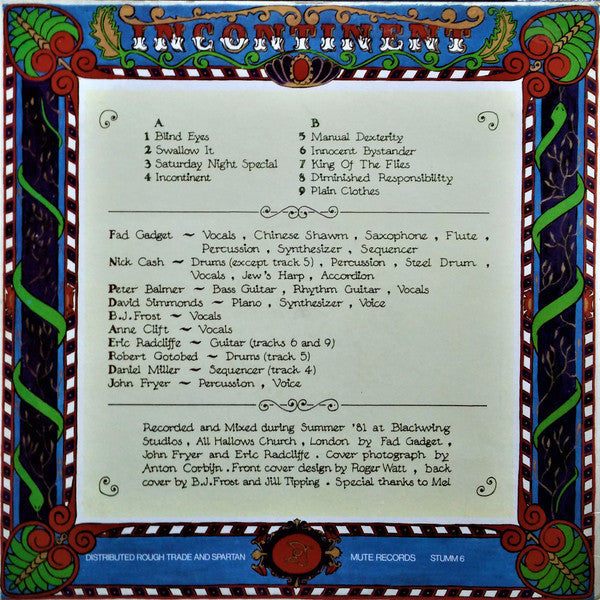 INCONTINENT
A
1 Blind Eyes
2 Swallow It
3 Saturday Night Special
4 Incontinent
B
5 Manual Dexterity
6 Innocent Bystander
7 King Of The Flies
8 Diminished Responsibility
9 Plain Clothes
Fad Gadget ~ Vocals , Chinese Shawm , Saxophone , Flute ,
Percussion , Synthesizer , Sequencer
Nick Cash ~ Drums (except track 5) , Percussion , Steel Drum ,
Vocals , Jew's Harp , Accordion
Peter Balmer ~ Bass Guitar , Rhythm Guitar , Vocals
David Simmonds ~ Piano , Synthesizer , Voice
B.J.Frost ~ Vocals
Anne Clift ~ Vocals
Eric Radcliffe ~ Guitar (tracks 6 and 9)
Robert Gotobed ~ Drums (track 5)
Daniel Miller ~ Sequencer (track 4)
John Fryer ~ Percussion , Voice
Recorded and Mixed during Summer '81 at Blackwing
Studios , All Hallows Church , London by Fad Gadget ,
John Fryer and Eric Radcliffe . Cover photograph by
Anton Corbijn . Front cover design by Roger Watt , back
cover by B.J.Frost and Jill Tipping . Special thanks to Mel
DISTRIBUTED ROUGH TRADE AND SPARTAN
MUTE RECORDS STUMM 6